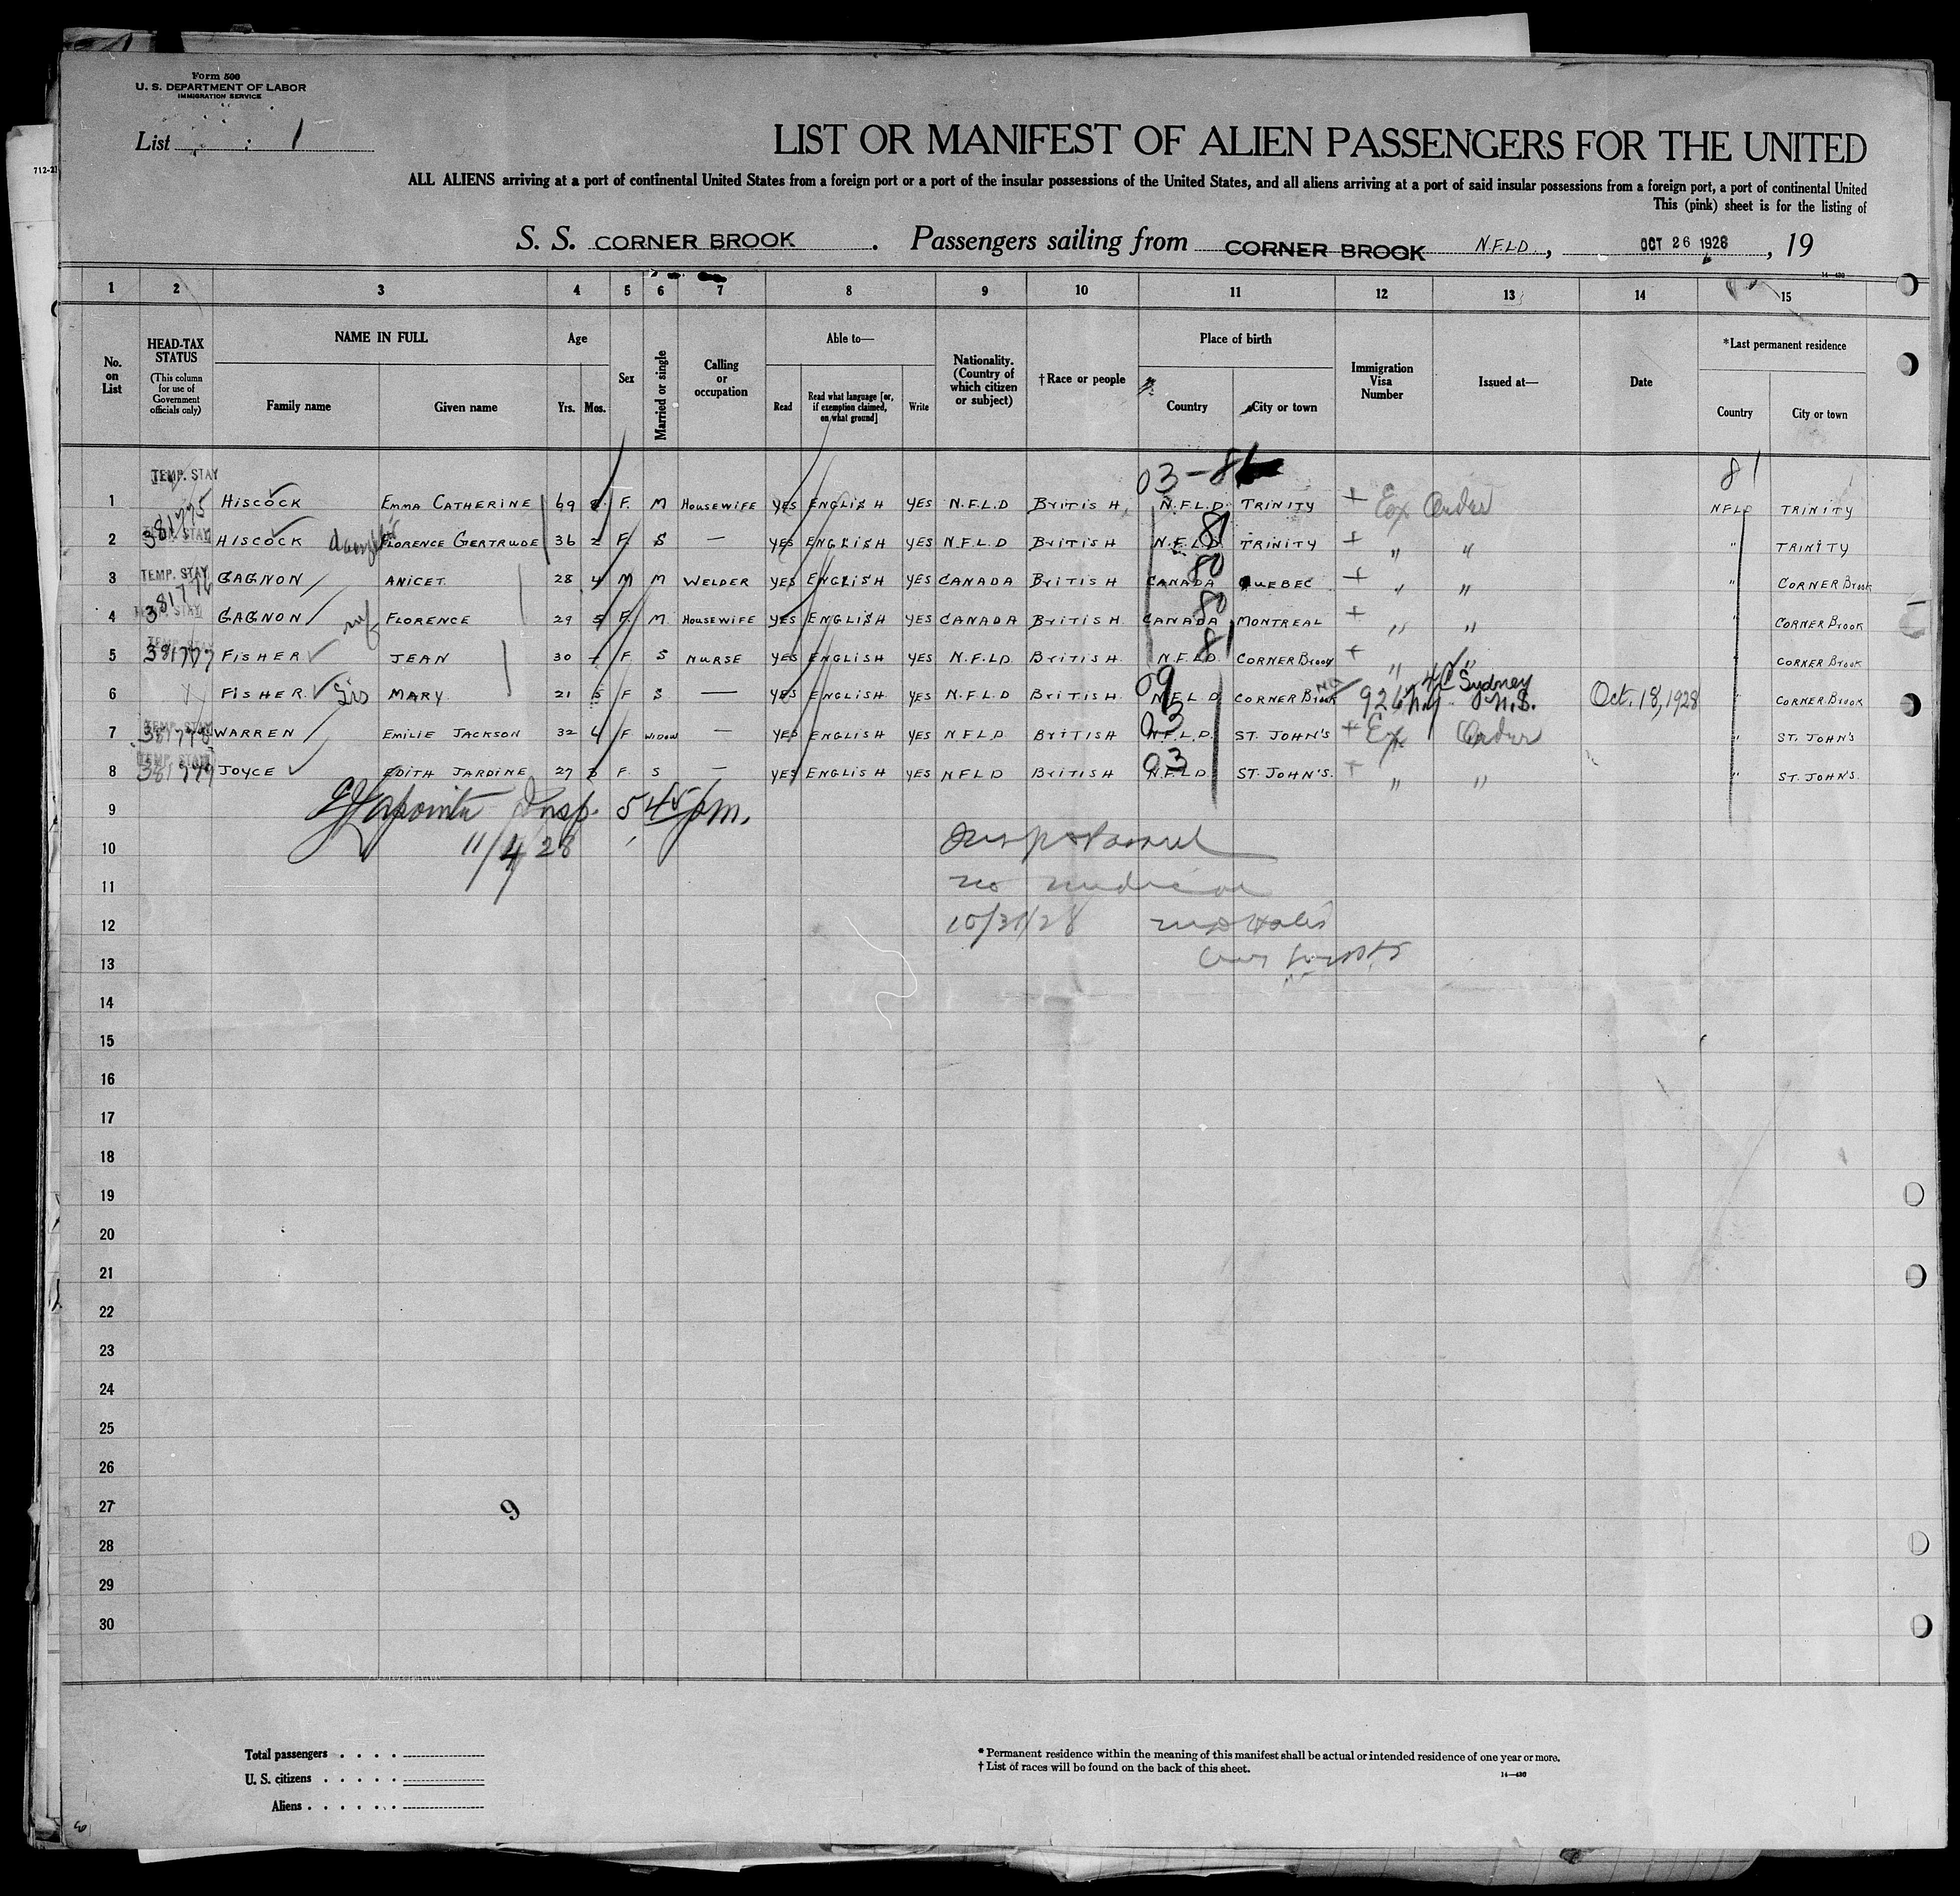 Form 500
U. S. DEPARTMENT OF LABOR
IMMIGRATION SERVICE
List 1
712-2
LIST OR MANIFEST OF ALIEN PASSENGERS FOR THE UNITED
ALL ALIENS arriving at a port of continental United States from a foreign port or a port of the insular possessions of the United States, and all aliens arriving at a port of said insular possessions from a foreign port, a port of continental United
This (pink) sheet is for the listing of
S. S. CORNER BROOK . Passengers sailing from CORNER BROOK N.F.L.D., OCT 26 1928, 19
14—430
1 2 3 4 5 6 7 8 9 10 11 12 13 14 15
No. on List
HEAD-TAX STATUS
(This column for use of Government officials only)
NAME IN FULL
Family name
Given name
Age
Yrs. Mos.
Sex
Married or single
Calling or occupation
Able to—
Read
Read what language [or, if exemption claimed, on what ground]
Write
Nationality. (Country of which citizen or subject)
† Race or people
Place of birth
Country
City or town
Immigration Visa Number
Issued at—
Date
*Last permanent residence
Country
City or town
TEMP. STAY 03-8 81
1 381775 HISCOCK EMMA CATHERINE 69 F. M HOUSEWIFE YES ENGLISH YES N.F.L.D BRITISH N.F.L.D. TRINITY + Ex Order NFLD TRINITY
2 TEMP. STAY HISCOCK daughter FLORENCE GERTRUDE 36 2 F S — YES ENGLISH YES N.F.L.D BRITISH N.F.L.D 81 TRINITY + " " " TRINITY
3 TEMP. STAY 381776 GAGNON ANICET. 28 4 M M WELDER YES ENGLISH YES CANADA BRITISH CANADA 80 QUEBEC + " " " CORNER BROOK
4 TEMP. STAY GAGNON wf FLORENCE 29 5 F. M HOUSEWIFE YES ENGLISH YES CANADA BRITISH CANADA 80 MONTREAL + " " " CORNER BROOK
5 TEMP. STAY 381777 FISHER JEAN 30 F. S NURSE YES ENGLISH YES N.F.LD BRITISH N.F.LD 81 CORNER BROOK + " " " CORNER BROOK
6 FISHER. Sis MARY. 21 5 F S — YES ENGLISH YES N.F.L.D BRITISH 09 N.F.L.D CORNER BROOK 926 Sydney N.S. Oct. 18, 1928 " CORNER BROOK
7 TEMP. STAY 381778 WARREN EMILIE JACKSON 32 6 F WIDOW — YES ENGLISH YES N.F.L.D BRITISH 03 N.F.L.D. ST. JOHN'S + Ex Order " ST. JOHN'S
8 TEMP. STAY 381779 JOYCE EDITH JARDINE 27 3 F. S — YES ENGLISH YES NFLD BRITISH 03 N.F.L.D. ST. JOHN'S. + " " " ST. JOHN'S.
9 Insp. 5 45 pm.
10 11/4/28
11 no
12 10/31/28
13
14
15
16
17
18
19
20
21
22
23
24
25
26
27 9
28
29
30
Total passengers . . . .
U. S. citizens . . . . .
Aliens . . . . . .
* Permanent residence within the meaning of this manifest shall be actual or intended residence of one year or more.
† List of races will be found on the back of this sheet.
14—430